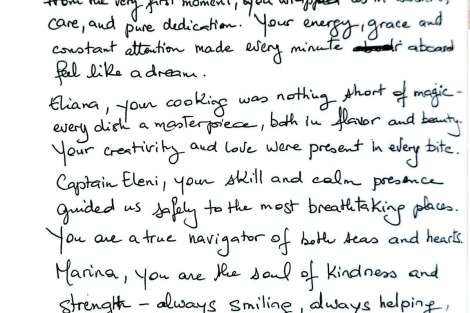 from the very first moment, you wrapped us in
care, and pure dedication. Your energy, grace and
constant attention made every minute aboard
feel like a dream.
Eliana, your cooking was nothing short of magic -
every dish a masterpiece, both in flavor and beauty.
Your creativity and love were present in every bite.
Captain Eleni, your skill and calm presence
guided us safely to the most breathtaking places.
You are a true navigator of both seas and hearts.
Marina, you are the soul of kindness and
strength – always smiling, always helping,